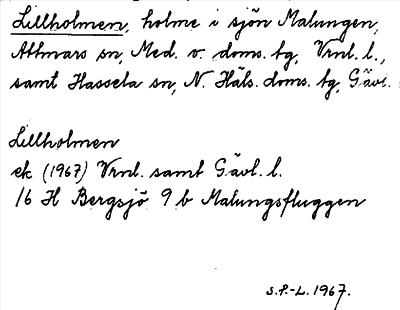 Lillholmen, holme i sjön Malungen,
Attmars sn, Med. v. doms. tg, Vrnl. l.,
samt Hassela sn, N. Häls. doms. tg, Gävl.
Lillholmen
ek (1967) Vrnl. samt Gävl. l.
16 H Bergsjö 9 b Malungsfluggen
S.P.-L. 1967.